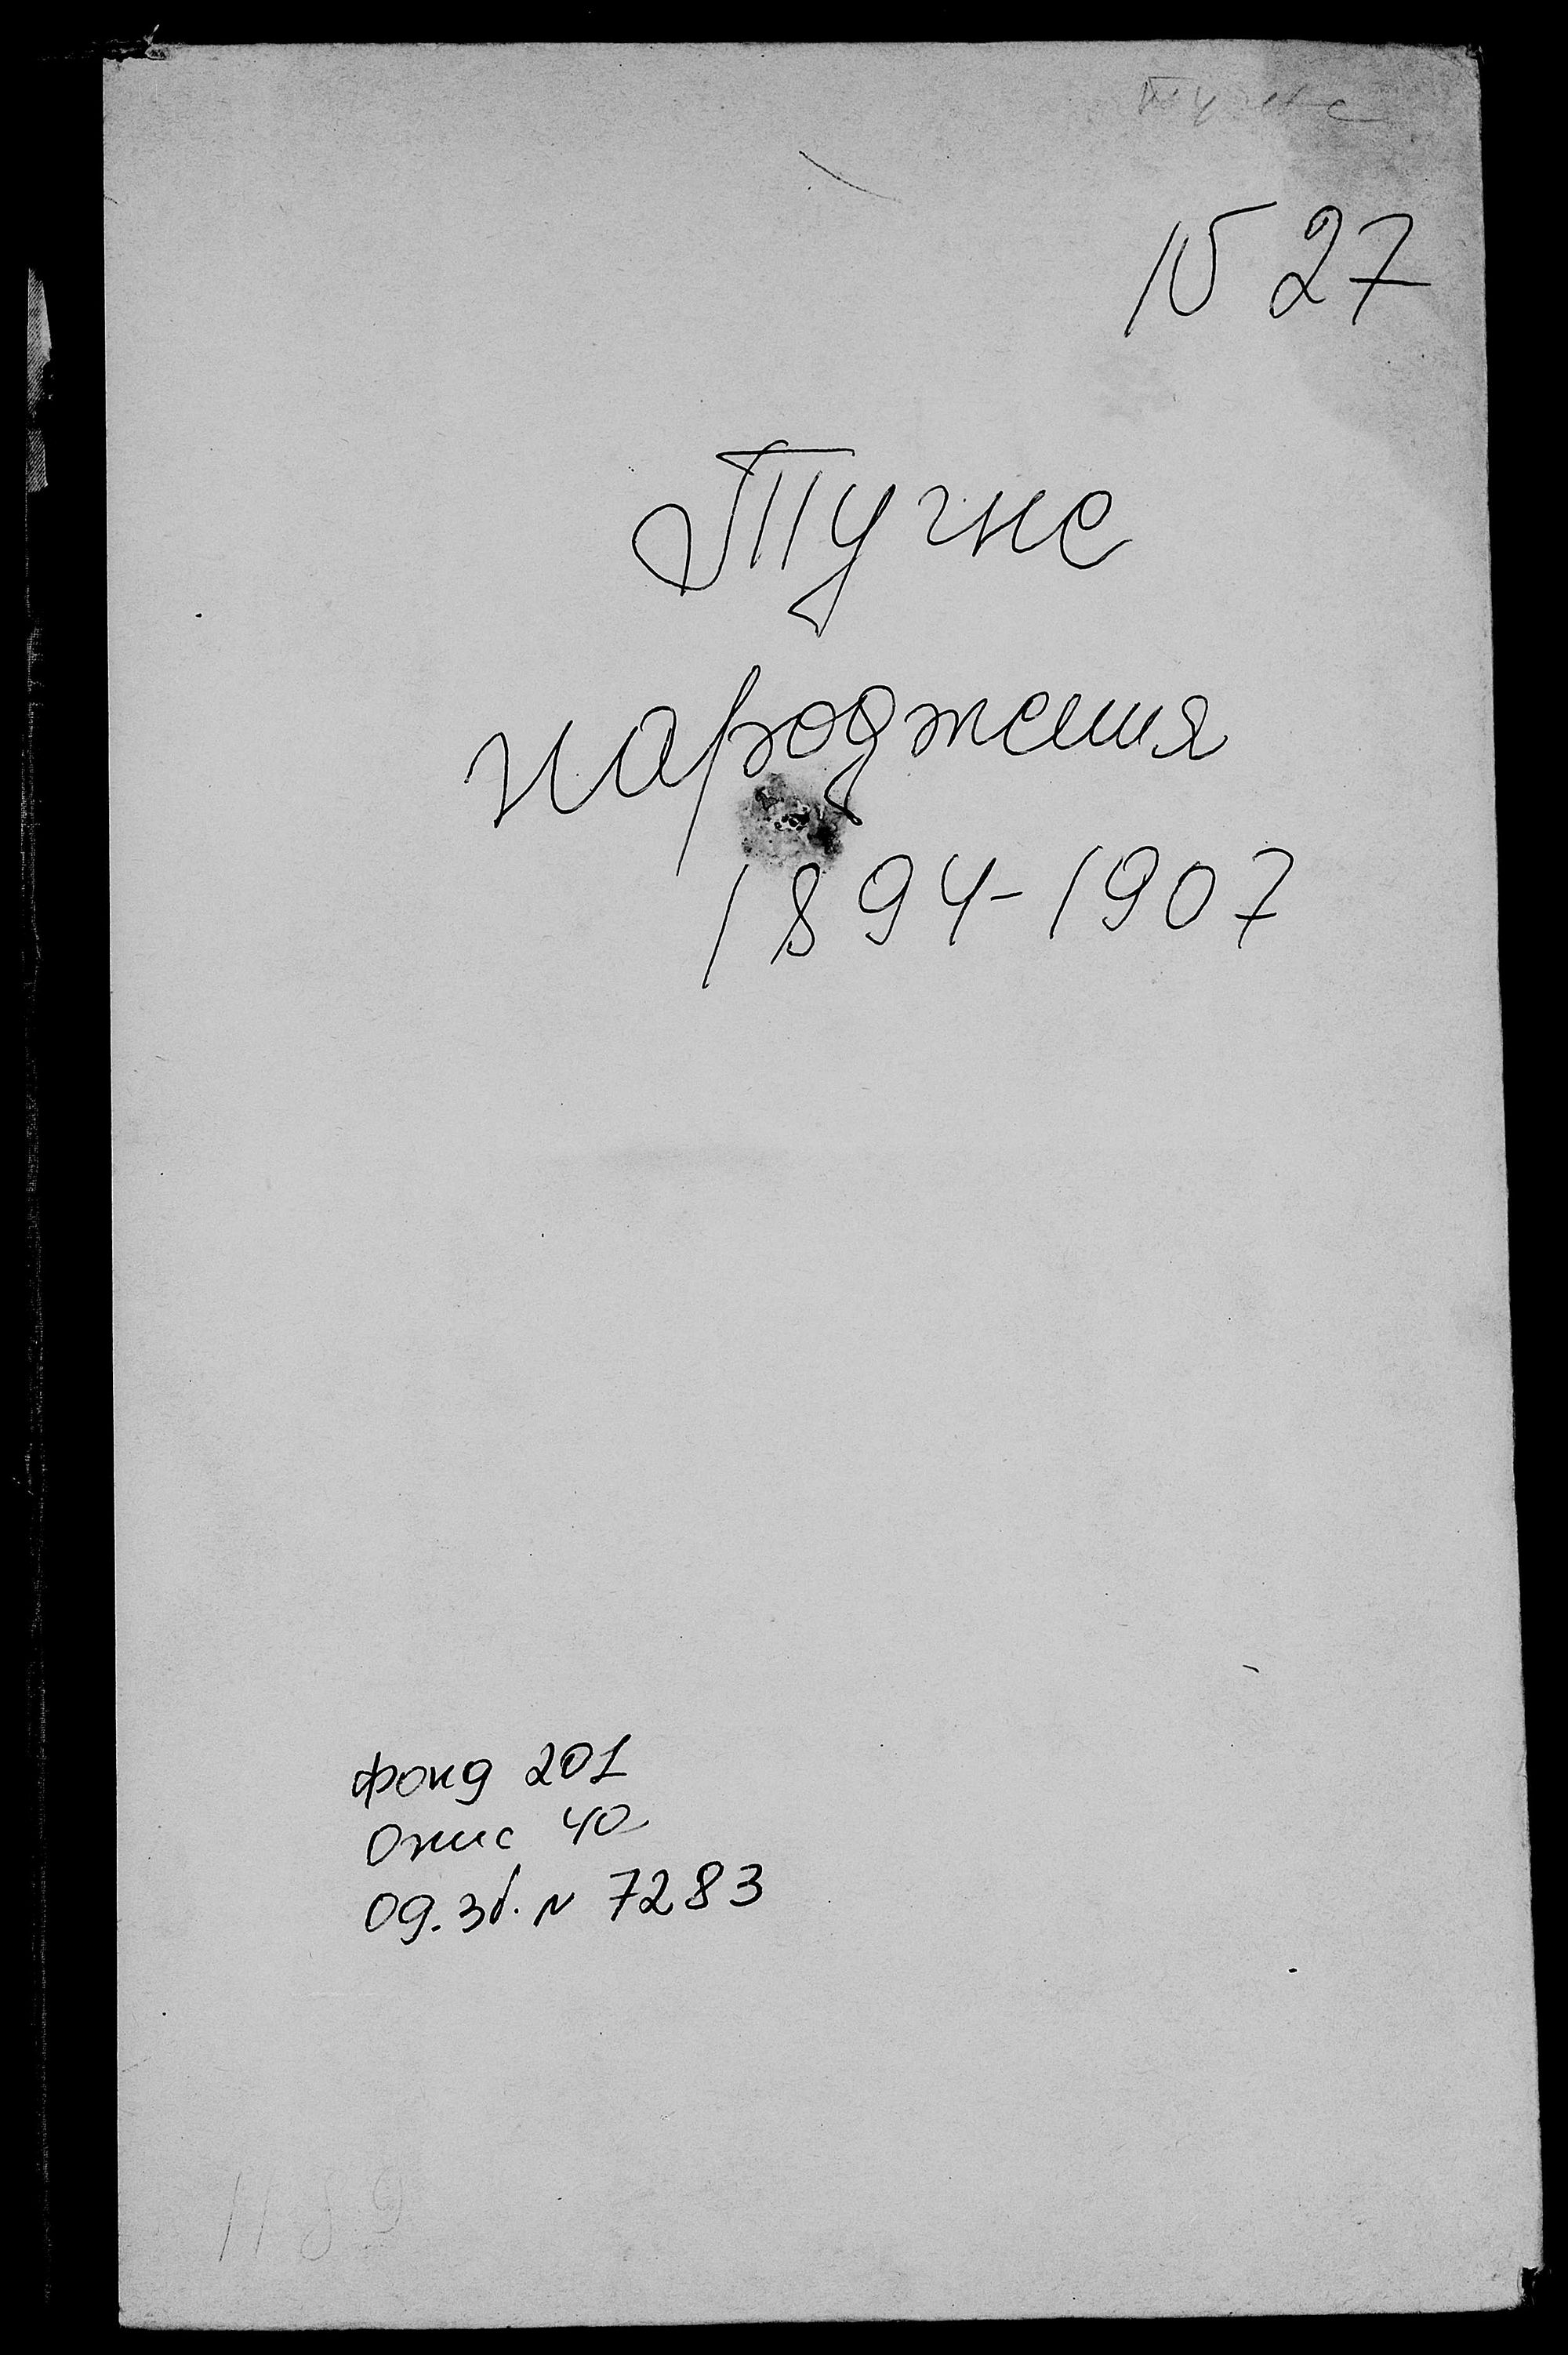 Тугне
1527
Тугне
народження
1894-1907
фонд 201
Опис 40
Од. зб. N 7283
1189